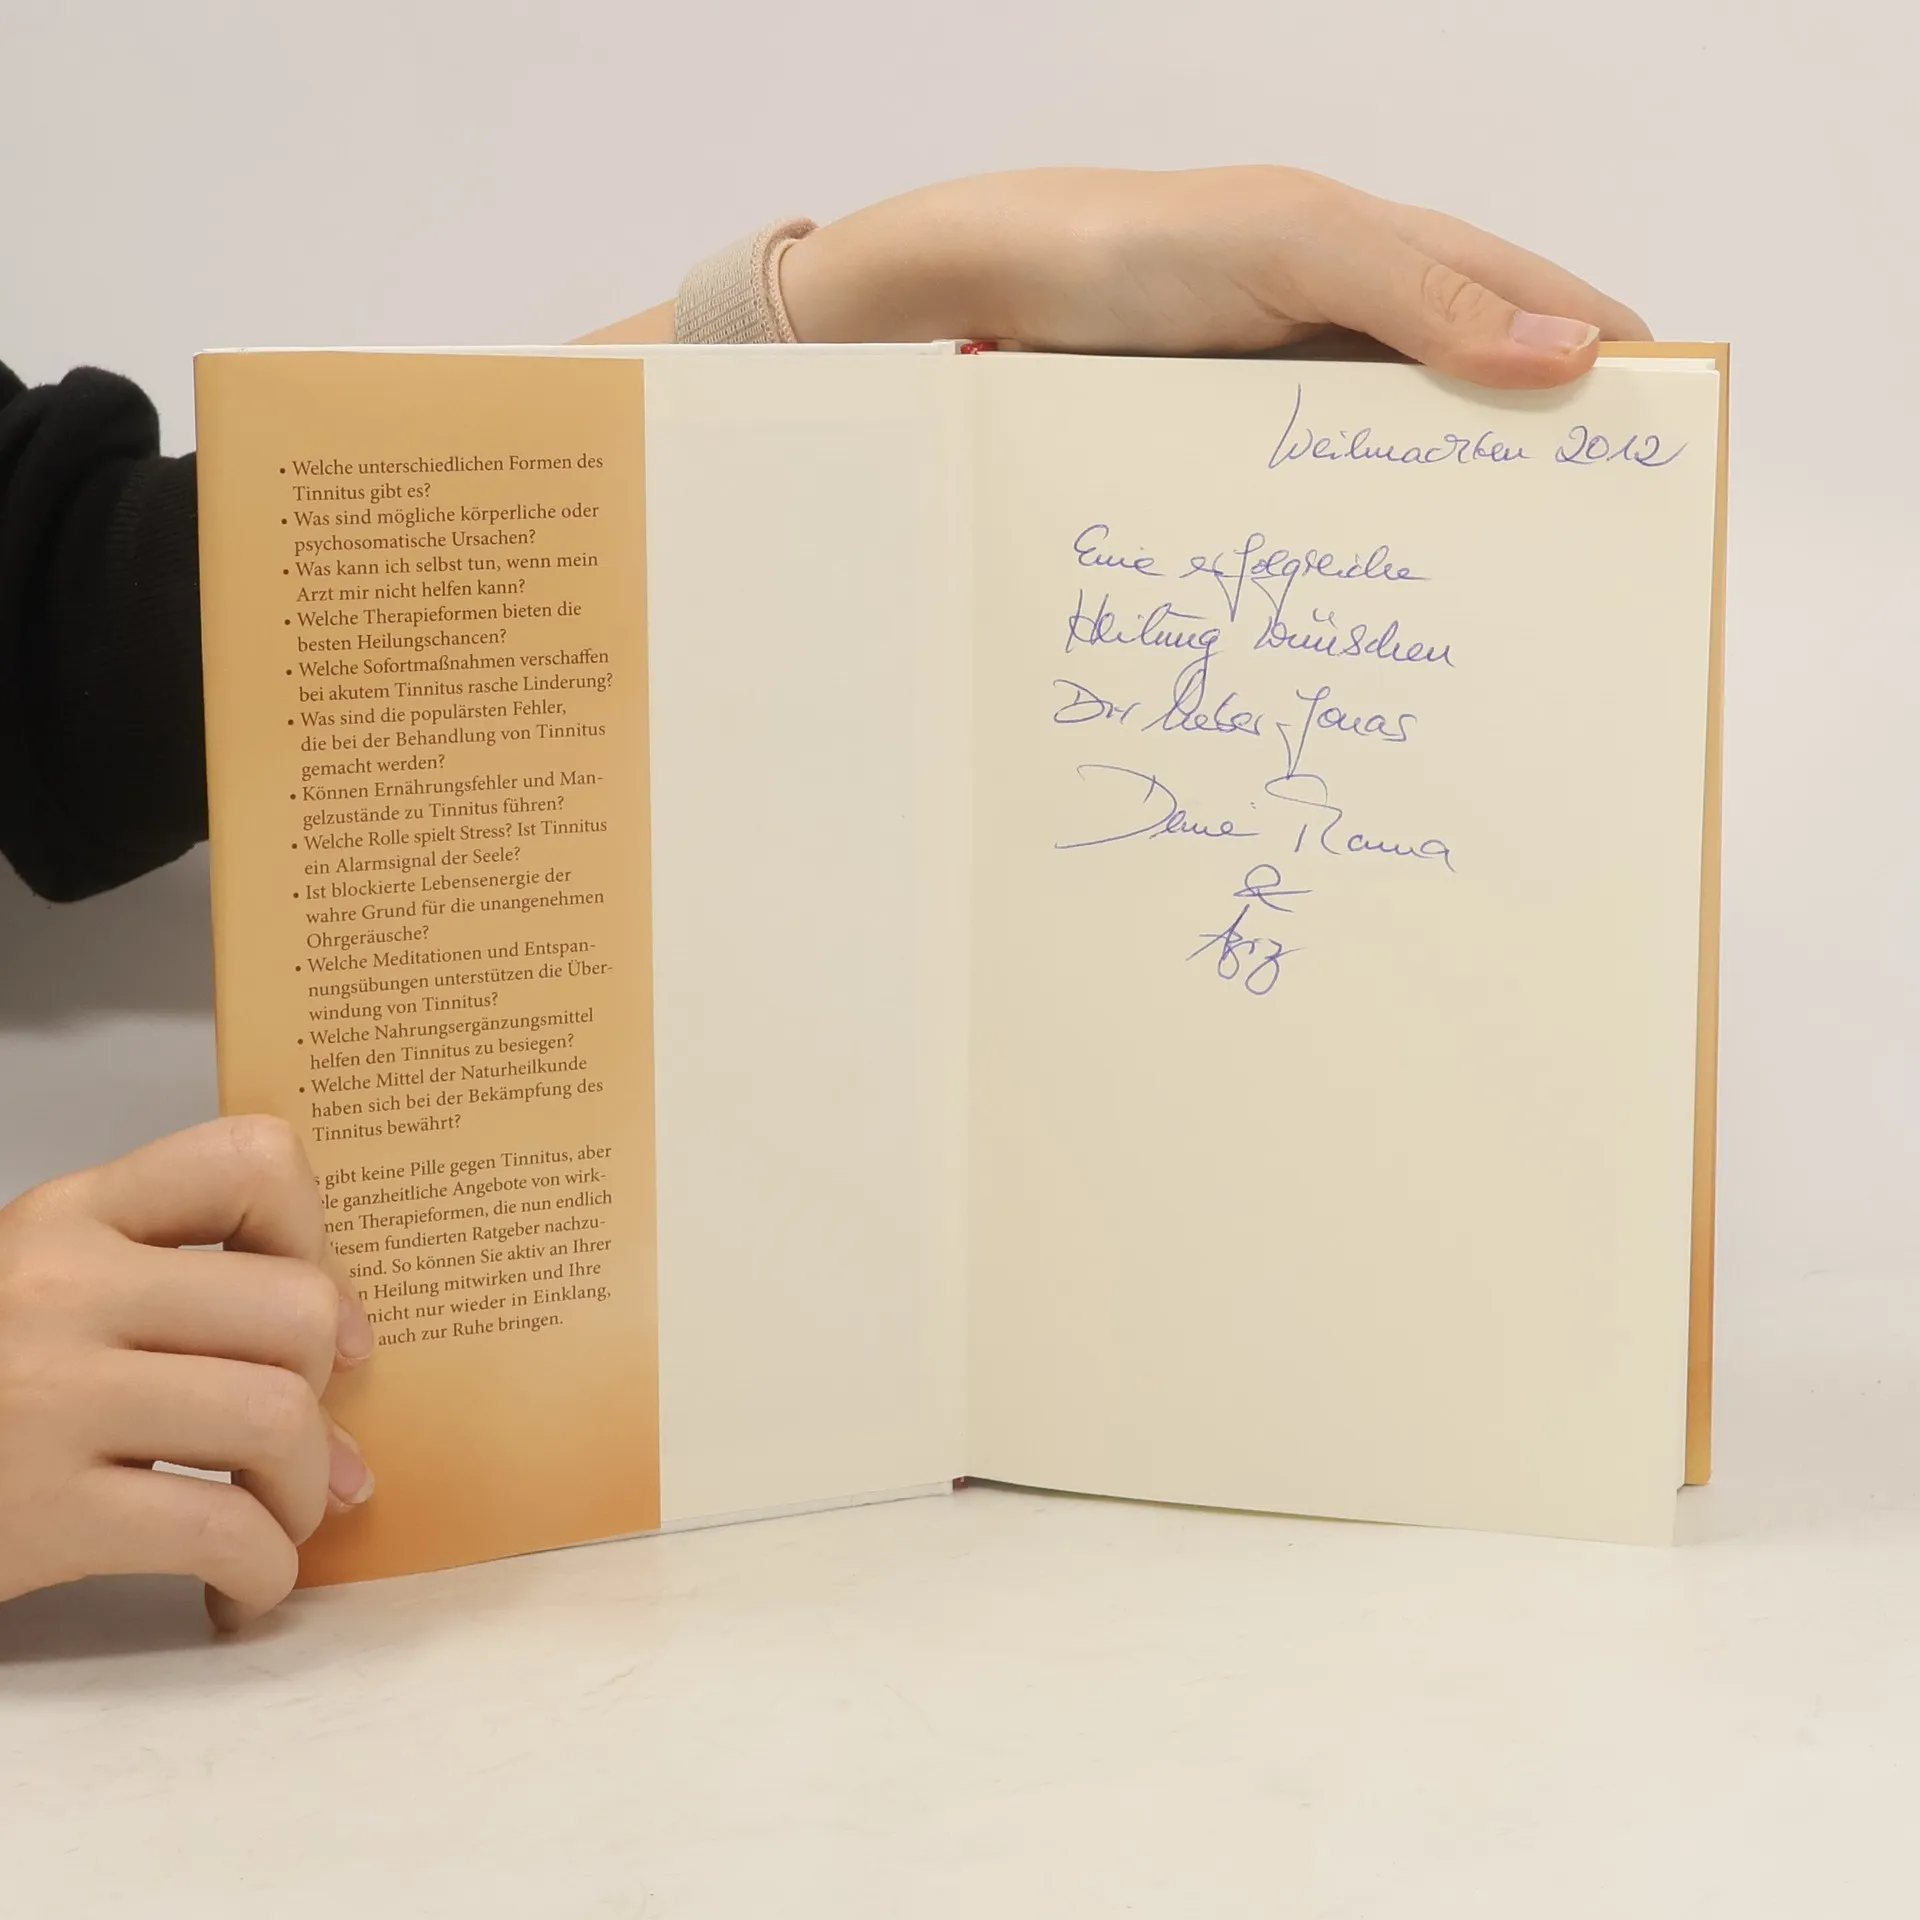 • Welche unterschiedlichen Formen des
Tinnitus gibt es?
• Was sind mögliche körperliche oder
psychosomatische Ursachen?
• Was kann ich selbst tun, wenn mein
Arzt mir nicht helfen kann?
• Welche Therapieformen bieten die
besten Heilungschancen?
• Welche Sofortmaßnahmen verschaffen
bei akutem Tinnitus rasche Linderung?
• Was sind die populärsten Fehler,
die bei der Behandlung von Tinnitus
gemacht werden?
• Können Ernährungsfehler und Man-
gelzustände zu Tinnitus führen?
• Welche Rolle spielt Stress? Ist Tinnitus
ein Alarmsignal der Seele?
• Ist blockierte Lebensenergie der
wahre Grund für die unangenehmen
Ohrgeräusche?
• Welche Meditationen und Entspan-
nungsübungen unterstützen die Über-
windung von Tinnitus?
• Welche Nahrungsergänzungsmittel
helfen den Tinnitus zu besiegen?
• Welche Mittel der Naturheilkunde
haben sich bei der Bekämpfung des
Tinnitus bewährt?
gibt keine Pille gegen Tinnitus, aber
ganzheitliche Angebote von wirk-
Therapieformen, die nun endlich
fundierten Ratgeber nachzu-
sind. So können Sie aktiv an Ihrer
Heilung mitwirken und Ihre
nicht nur wieder in Einklang,
auch zur Ruhe bringen.
Weihnachten 2012
Eine erfolgreiche
Heilung wünschen
Dir lieber Jonas
Deine Mama
&